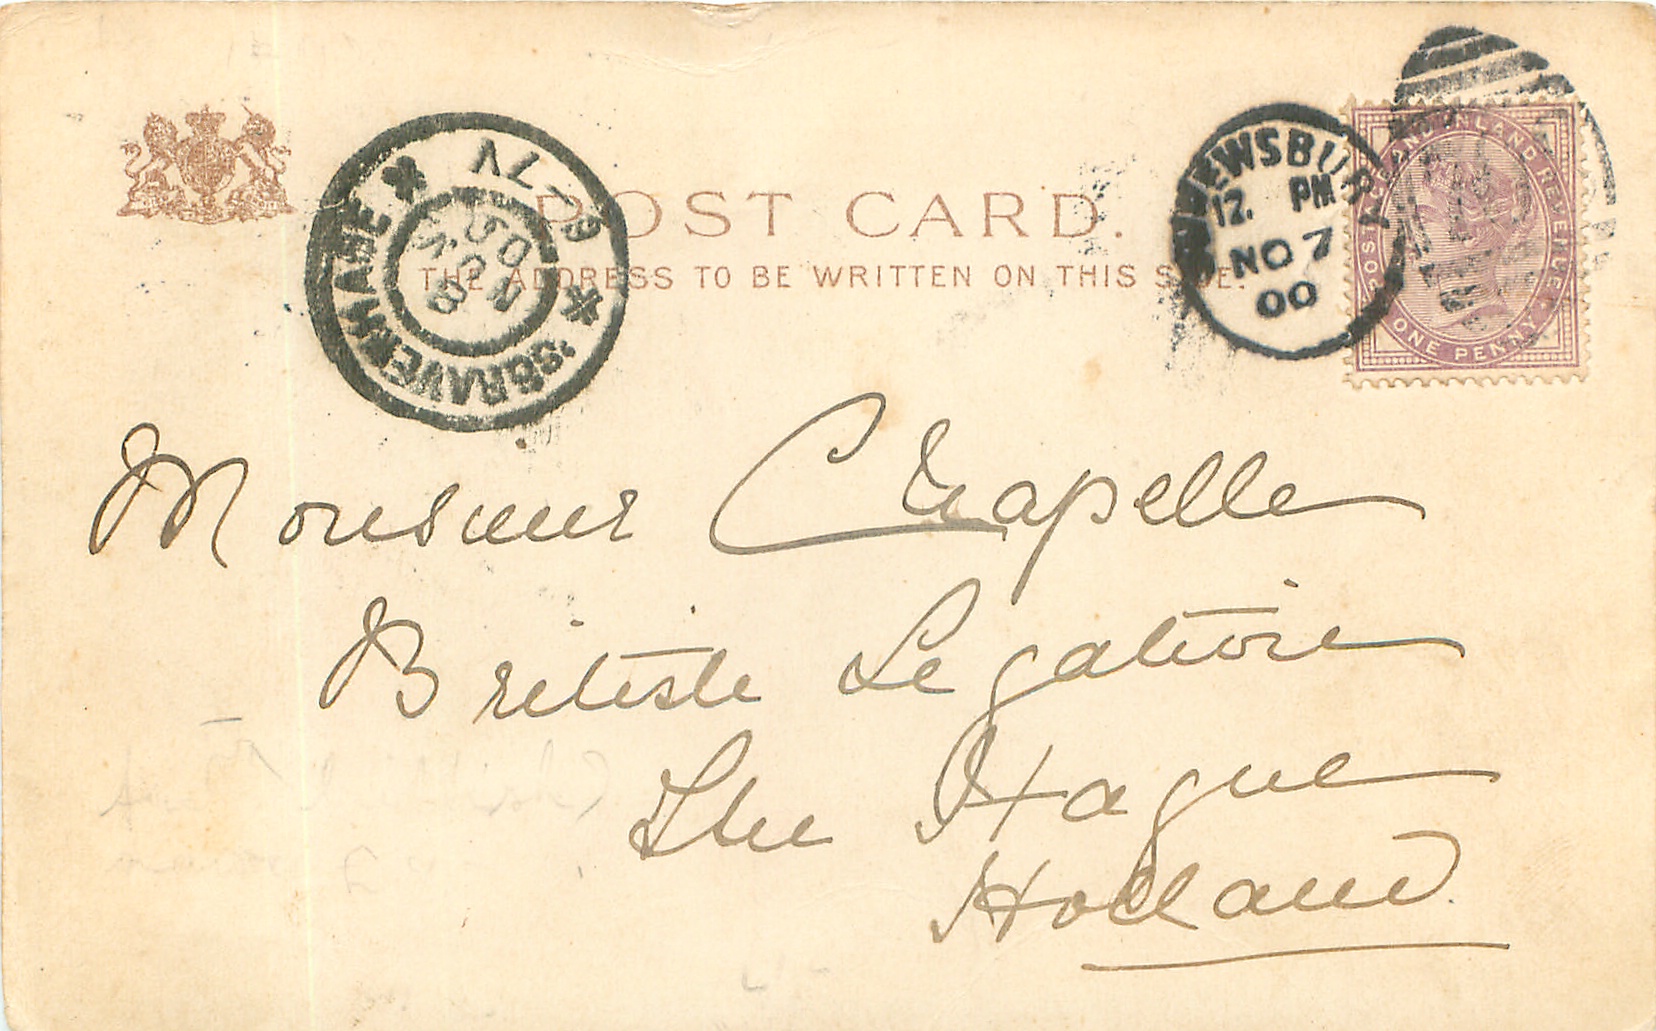 POST CARD.
THE ADDRESS TO BE WRITTEN ON THIS SIDE.
'SGRAVENHAGE
6-7V
8
NOV
00
SHREWSBURY
12. PM
NO 7
00
POSTAGE AND INLAND REVENUE
ONE PENNY
Monsieur Chapelle
British Legation
The Hague
Holland